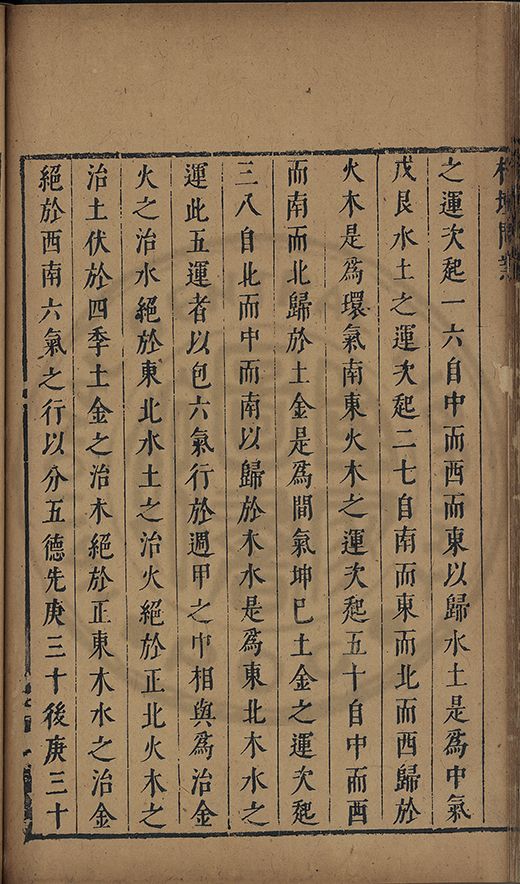 之運次起一六自中而酉而東以歸水土是為中氣
戊艮水土之運次起二七自南而東而北而西歸於
火木是為環氣南東火木之運次起五十自中而酉
而南而北歸於土金是為間氣坤巳土金之運次起
三八自北而中而南以歸於木水是為東北木水之
運此五運者以包六氣行於週甲之中相與為治金
火之治水絕於東北水土之治火絕於正北火木之
治土伏於四季土金之治木絕於正東木水之治金
絕於西南六氣之行以分五德先庚三十後庚三十